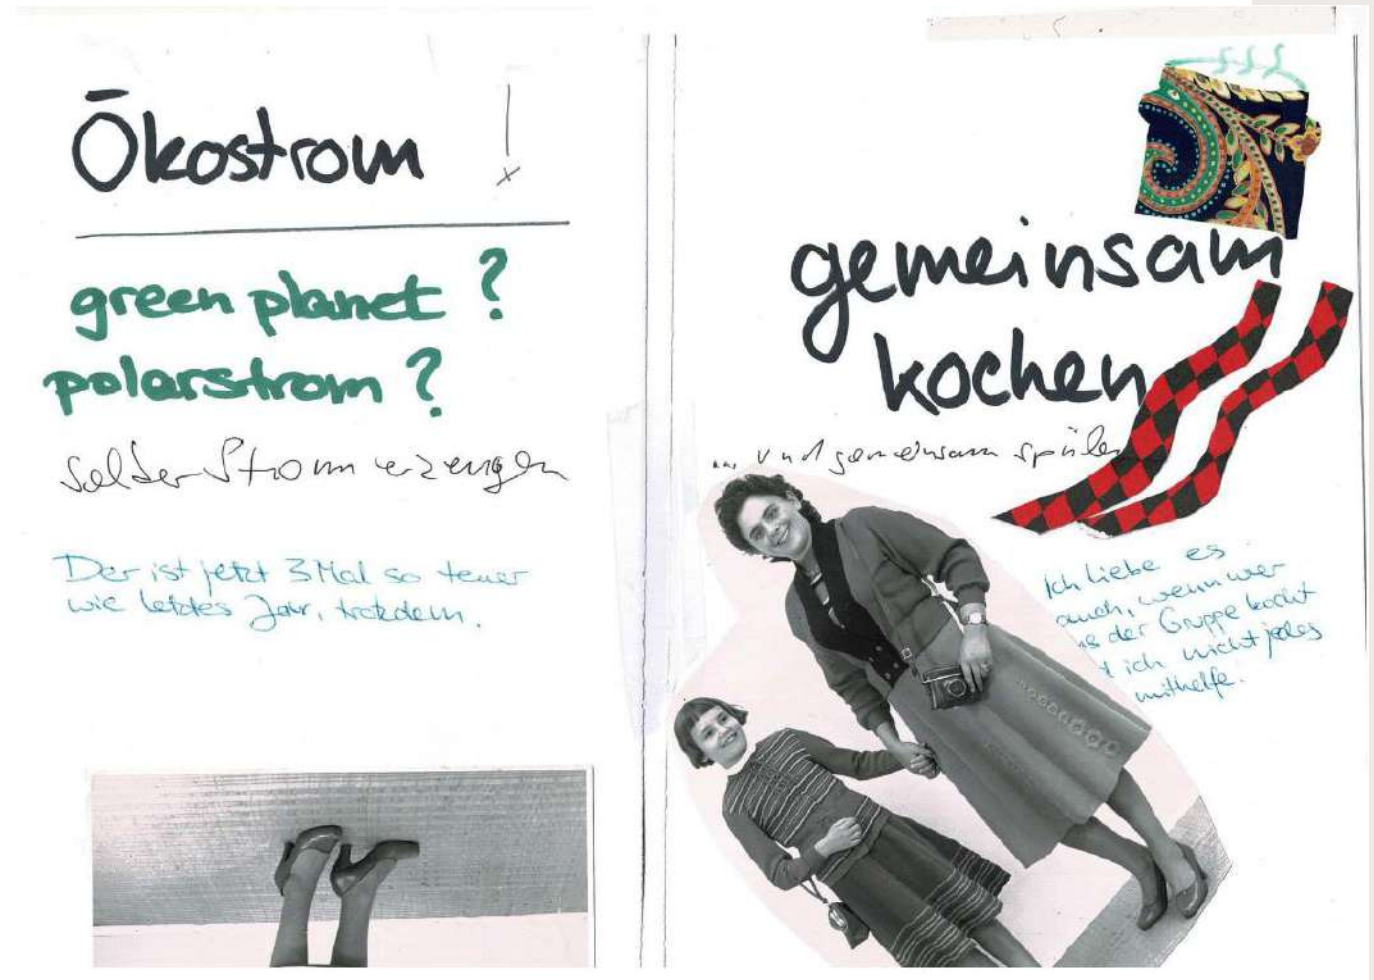 Ökostrom !
green planet ?
polarstrom ?
Selber Strom erzeugen
Der ist jetzt 3 Mal so teuer
wie letztes Jahr, trotzdem.
gemeinsam
kochen
... und gemeinsam spülen
Ich liebe es
auch, wenn wer
der Gruppe kocht
ich nicht jedes
mithelfe.